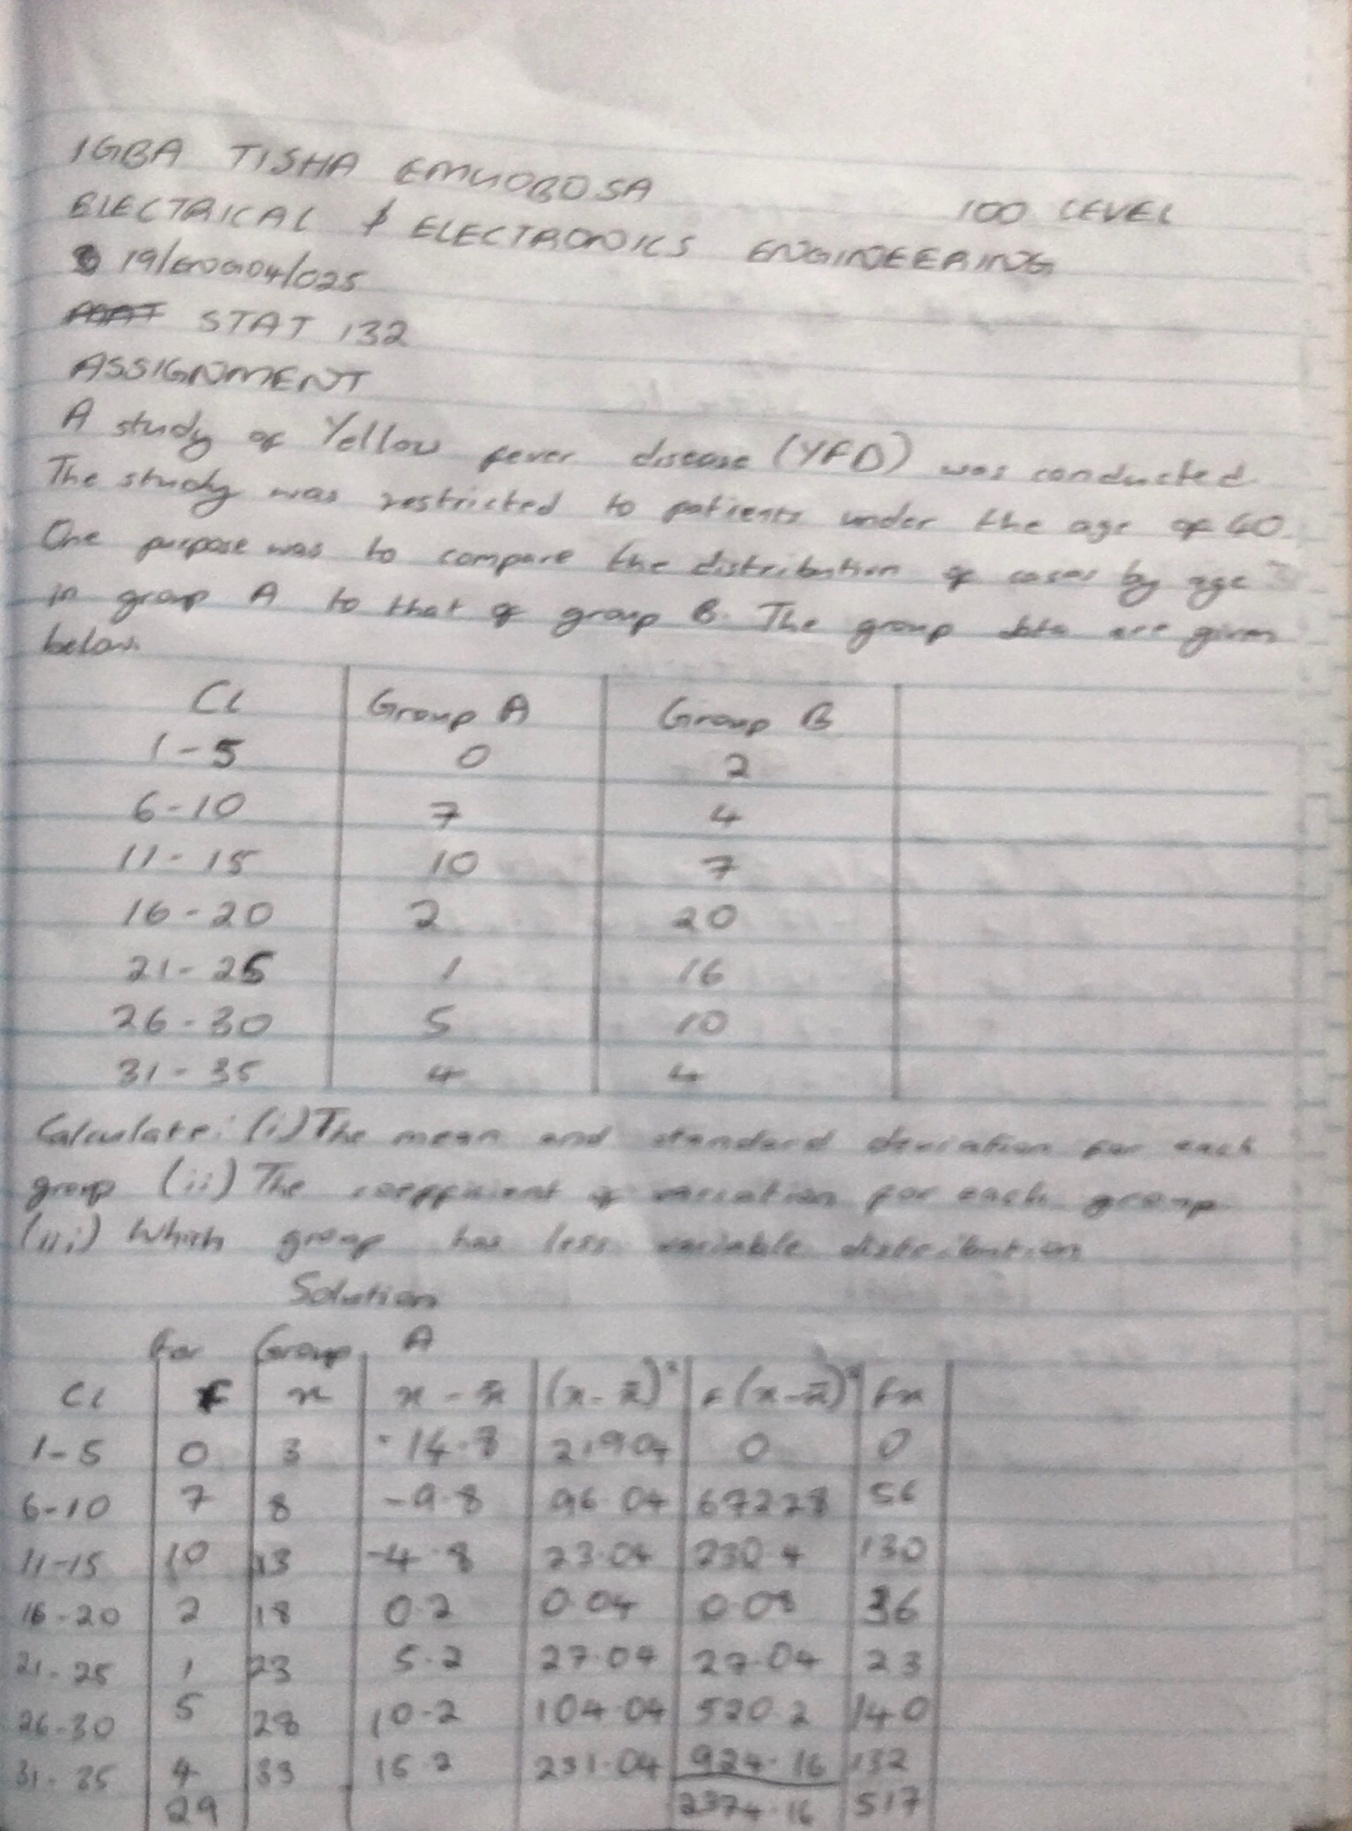 IGBA TISHA EMUOBOSA
100 LEVEL
ELECTRICAL & ELECTRONICS ENGINEERING
19/ENG04/025
STAT 132
ASSIGNMENT
A study of Yellow fever disease (YFD) was conducted.
The study was restricted to patients under the age of 40.
One purpose was to compare the distribution of cases by age
in group A to that of group B. The group data are given
below.
CL Group A Group B
1-5 0 2
6-10 7 4
11-15 10 7
16-20 2 20
21-25 1 16
26-30 5 10
31-35 4 4
Calculate: (i) The mean and standard deviation for each
group (ii) The coefficient of variation for each group
(iii) Which group has less variable distribution
Solution
For Group A
CL f x x - x̄ (x - x̄)² f(x - x̄)² fx
1-5 0 3 -14.8 219.04 0 0
6-10 7 8 -9.8 96.04 672.28 56
11-15 10 13 -4.8 23.04 230.4 130
16-20 2 18 0.2 0.04 0.08 36
21-25 1 23 5.2 27.04 27.04 23
26-30 5 28 10.2 104.04 520.2 140
31-35 4 33 15.2 231.04 924.16 132
29 2374.16 517